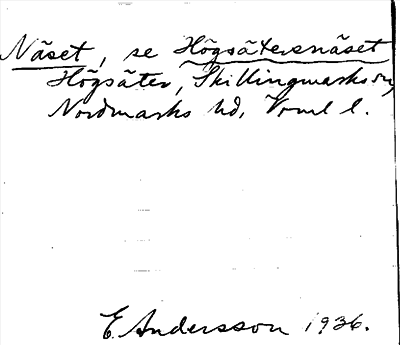 Näset, se Högsätersnäset
Högsäter, Skillingmarks sn,
Nordmarks hd, Vrml l.
E. Andersson 1936.